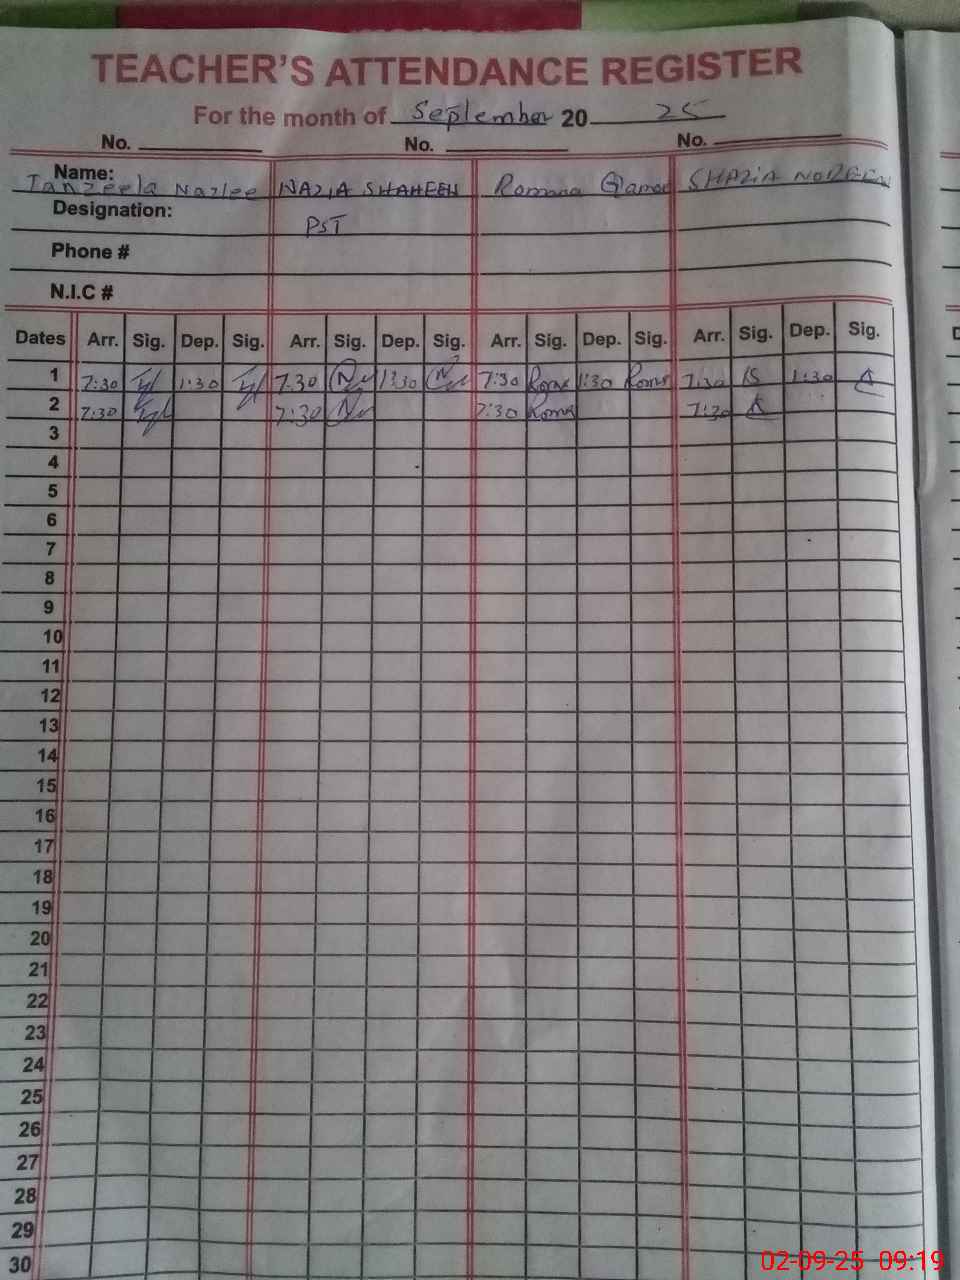 TEACHER'S ATTENDANCE REGISTER
For the month of September 20 25
No. No. No.
Name: Tanzeela Nazlee NAZIA SHAHEEN Romana Qamar SHAZIA NOREEN
Designation: PST
Phone #
N.I.C #
Dates Arr. Sig. Dep. Sig. Arr. Sig. Dep. Sig. Arr. Sig. Dep. Sig. Arr. Sig. Dep. Sig.
1 7:30 1:30 7:30 1:30 7:30 Roma 1:30 Roma 7:30 1:30
2 7:30 7:30 7:30 Roma 7:30
3
4
5
6
7
8
9
10
11
12
13
14
15
16
17
18
19
20
21
22
23
24
25
26
27
28
29
30
02-09-25 09:19